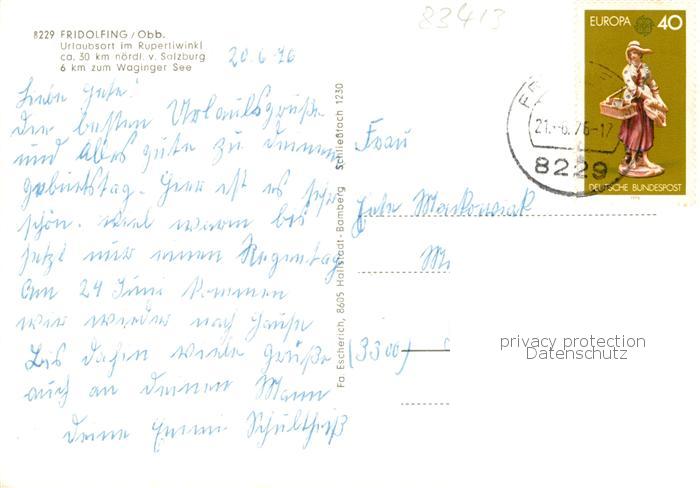 83413
8229 FRIDOLFING / Obb.
Urlaubsort im Rupertiwinkl
ca. 30 km nördl. v. Salzburg
6 km zum Waginger See
20.6.76
Liebe Gete!
Die besten Urlaubsgrüße
und alles gute zu deinem
Geburtstag. Hier ist es sehr
schön. Viel warm bis
jetzt nur einen Regentag
Am 24 Juni kommen
wir wieder nach Hause
Bis dahin viele Grüße
auch an deinen Mann
deine Emmi Schultheiß
Fa. Escherich, 8605 Hallstadt-Bamberg Schließfach 1230
EUROPA 40
21.-6.76-17
8229
DEUTSCHE BUNDESPOST
1976
Frau
Maikowiak
(3300)
privacy protection
Datenschutz